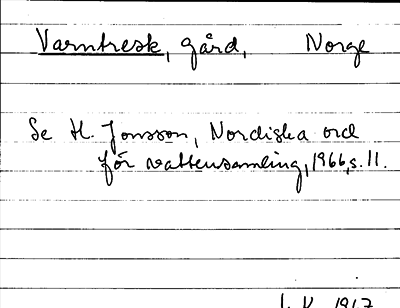 Varntresk, gård, Norge
Se H. Jonsson, Nordiska ord
för vattensamling, 1966, s. 11.